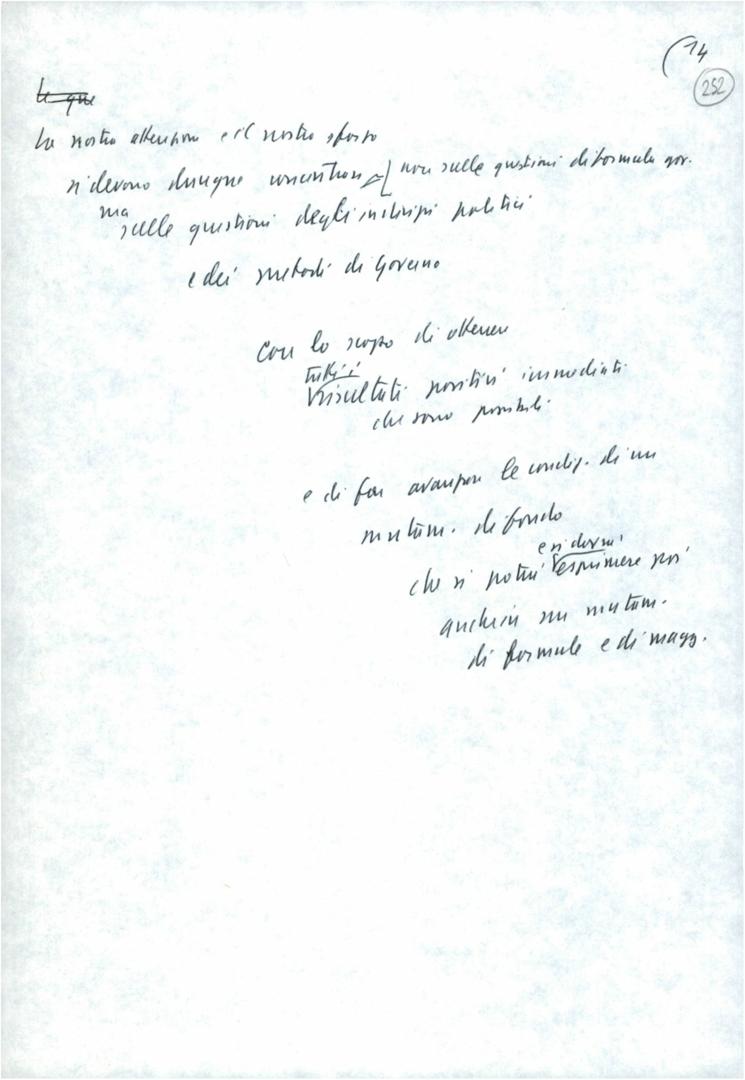 14
252
Le que
La nostra attenzione e il nostro sforzo
si devono dunque concentrare non sulle questioni di formula gov.
ma
sulle questioni degli indirizzi politici
e dei metodi di Governo
Con lo scopo di ottenere
tutti i
risultati positivi immediati
che sono possibili
e di far avanzare le condiz. di un
mutam. di fondo
e si dovrà
che si potrà esprimere poi
anche in un mutam.
di formule e di magg.